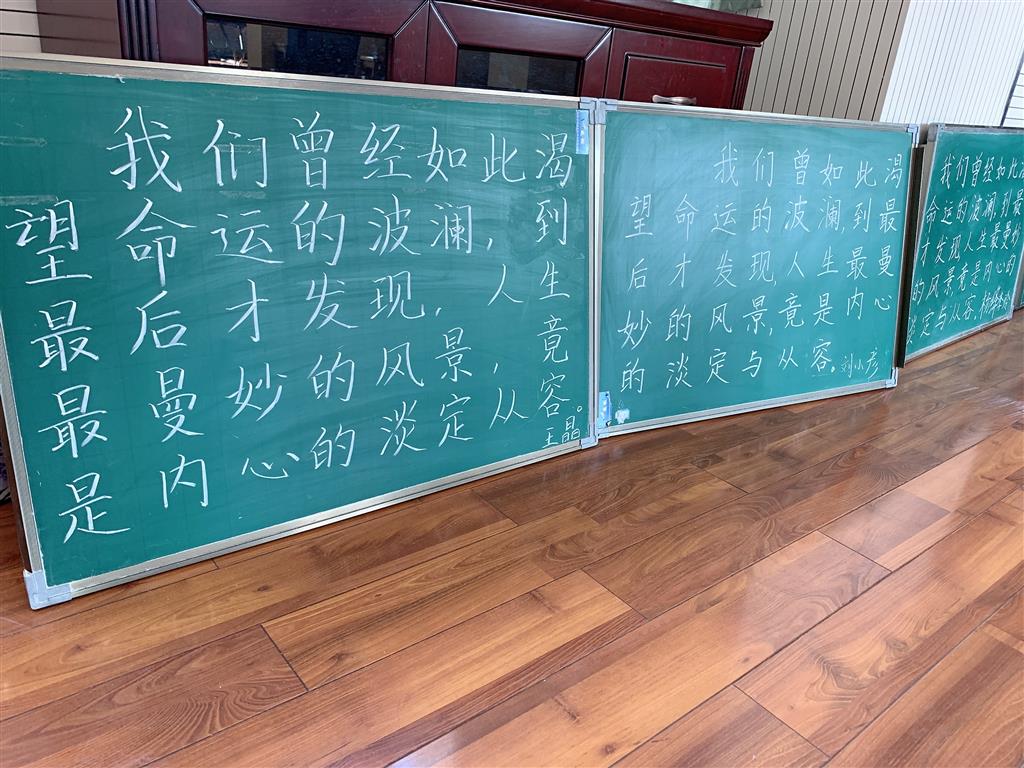 我们曾经如此渴
望命运的波澜，到
最后才发现，人生
最曼妙的风景，竟
是内心的淡定从容。
王晶
我们曾如此渴
望命运的波澜，到最
后才发现，人生最曼
妙的风景，竟是内心
的淡定与从容。刘小彦
我们曾经如此渴
命运的波澜，到最
才发现，人生最曼妙
的风景竟是内心的
淡定与从容。